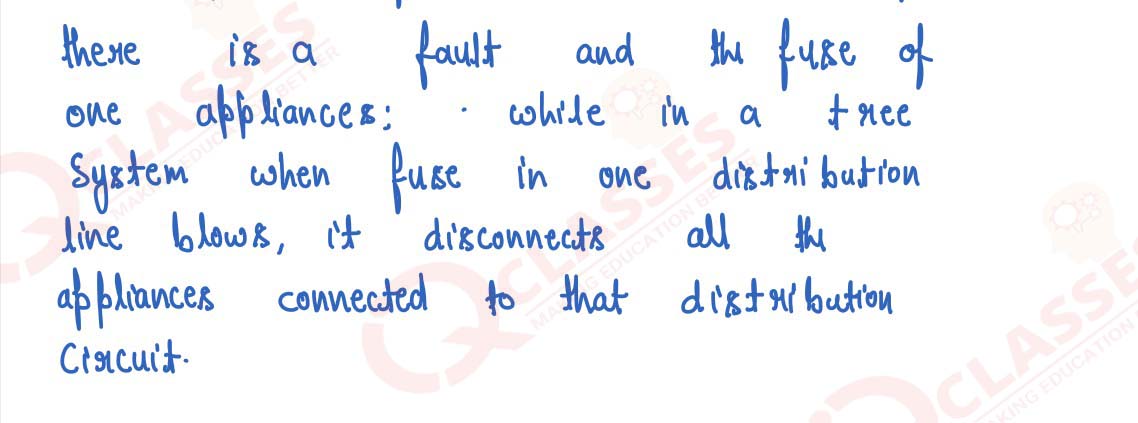 there is a fault and the fuse of
one appliances; while in a tree
System when fuse in one distribution
line blows, it disconnects all the
appliances connected to that distribution
Circuit.
CLASSES
MAKING EDUCATION BETTER
CLASSES
MAKING EDUCATION BETTER
CLASSES
MAKING EDUCATION